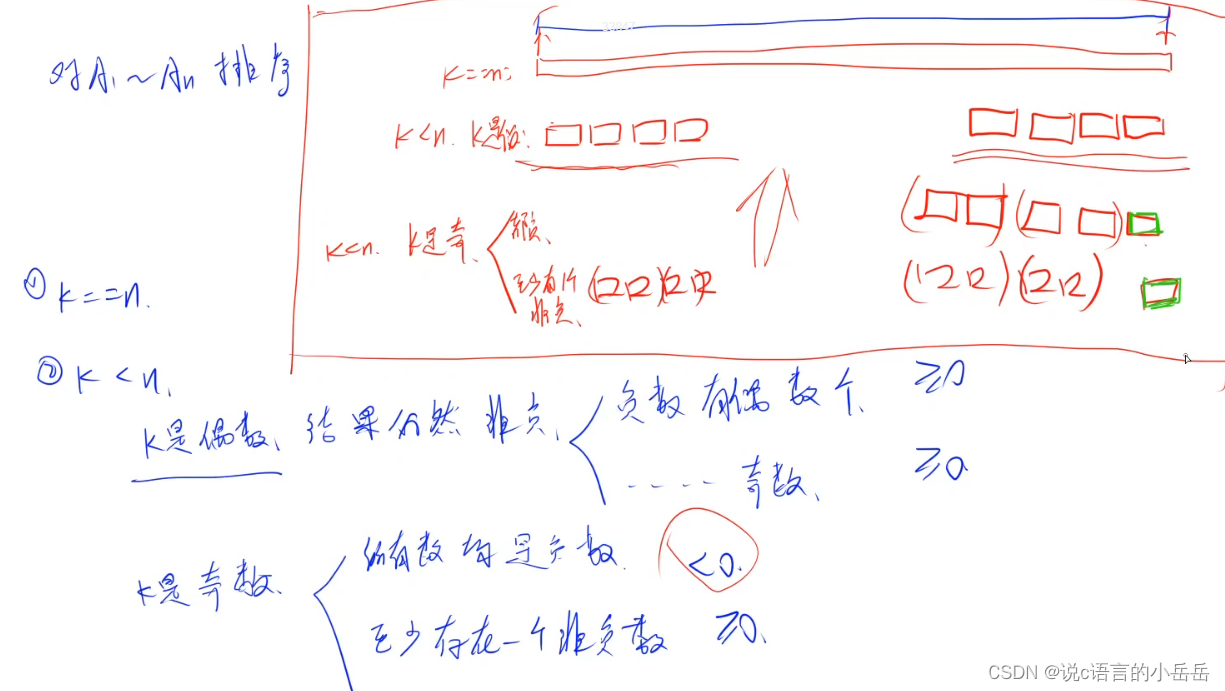 对A₁~Aₙ排序
k==n:
k<n. k是偶:
k<n. k是奇、
至少有1个
非负、
① k==n.
② k<n.
k是偶数、结果仍然非负、
负数有偶数个、 ≥0
----- 奇数、 ≥0
k是奇数、
所有数均是负数. <0.
至少存在一个非负数 ≥0、
CSDN @说c语言的小岳岳